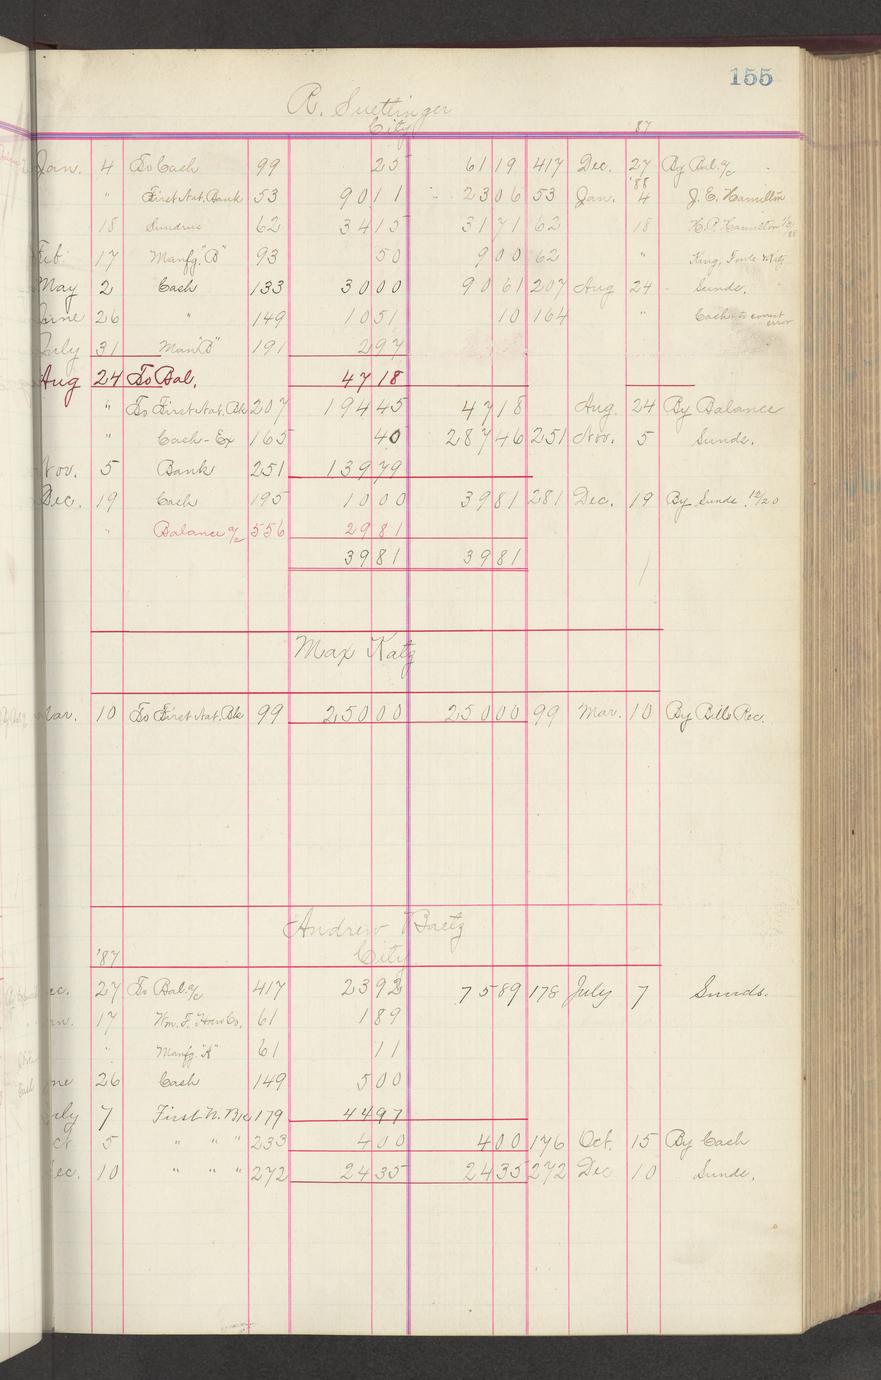 155
R. Suettinger
City
87
Jan. 4 To Cash 99 25 61 19 417 Dec. 27 By Bal. a/c
" First Nat. Bank 53 90 11 23 06 53 Jan. '88 4 J. E. Hamilton
18 Sundries 62 34 15 31 71 62 18 H. P. Hamilton
Feb. 17 Manfg. "B" 93 50 9 00 62 " King,
May 2 Cash 133 30 00 90 61 207 Aug 24 Sunds.
June 26 " 149 10 51 10 164 " Cash-to correct error
July 31 Man "B" 191 2 97
Aug 24 To Bal. 47 18
" To First Nat. Bk 207 194 45 47 18 Aug. 24 By Balance
" Cash-Ex 165 40 287 46 251 Nov. 5 Sunds.
Nov. 5 Bank 251 139 79
Dec. 19 Cash 195 10 00 39 81 281 Dec. 19 By Sunds. 12/20
" Balance a/c 556 29 81
39 81 39 81
Max Katz
Mar. 10 To First Nat. Bk 99 250 00 250 00 99 Mar. 10 By Bills Rec.
Andrew Baetz
City
'87
ec. 27 To Bal. a/c 417 23 92 75 89 178 July 7 Sunds.
an. 17 Wm. F. 61 1 89
" Manfg. "A" 61 11
ne 26 Cash 149 5 00
uly 7 First N. Bk 179 44 97
ct 5 " " " 233 4 00 4 00 176 Oct. 15 By Cash
ec. 10 " " " 272 24 35 24 35 272 Dec 10 Sunds.